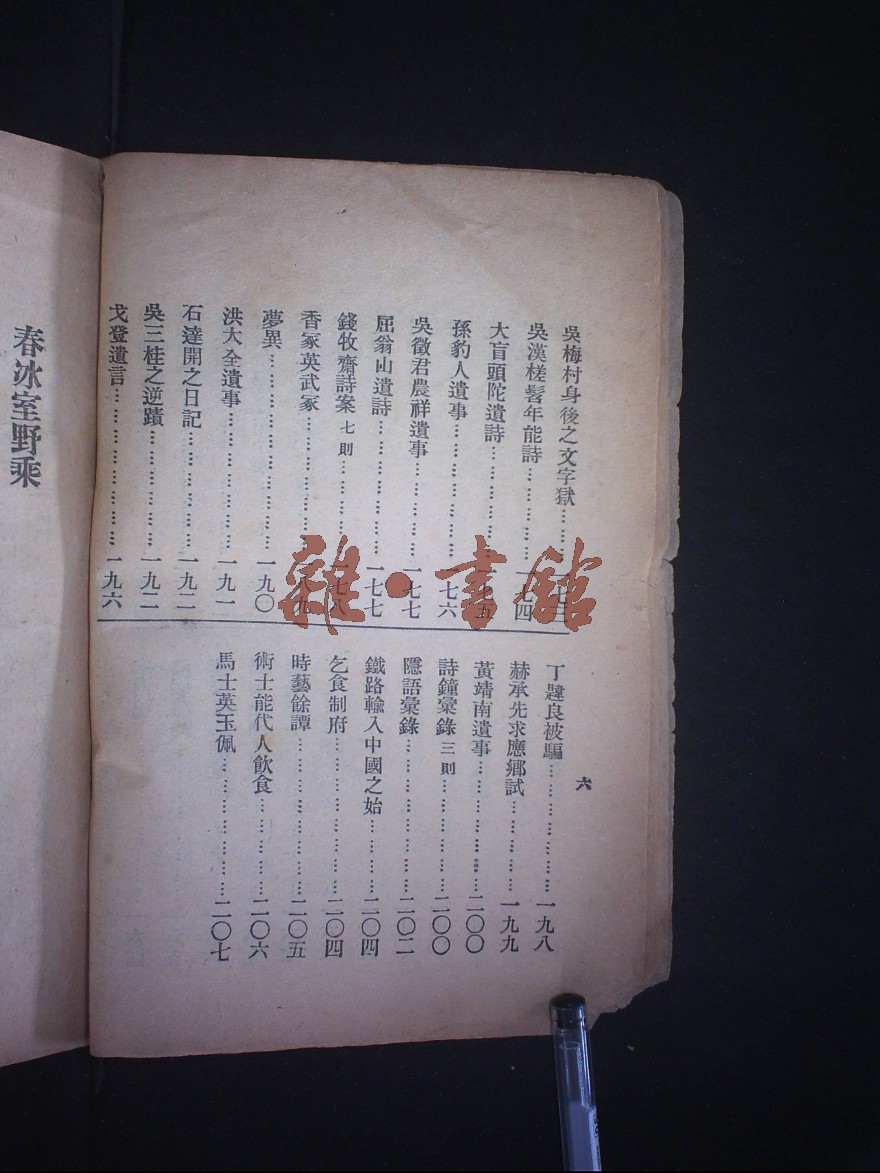 吳梅村身後之文字獄……一七三
吳漢槎髫年能詩……一七四
大盲頭陀遺詩……一七五
孫豹人遺事……一七六
吳徵君農祥遺事……一七七
屈翁山遺詩……一七七
錢牧齋詩案 七則……一七八
香冢英武冢……一八九
夢異……一九〇
洪大全遺事……一九一
石達開之日記……一九二
吳三桂之逆蹟……一九二
戈登遺言……一九六
六
丁韙良被騙……一九八
赫承先求應鄉試……一九九
黃靖南遺事……二〇〇
詩鐘彙錄 三則……二〇〇
隱語彙錄……二〇二
鐵路輸入中國之始……二〇四
乞食制府……二〇四
時藝餘譚……二〇五
術士能代人飲食……二〇六
馬士英玉佩……二〇七
春冰室野乘
雜·書館